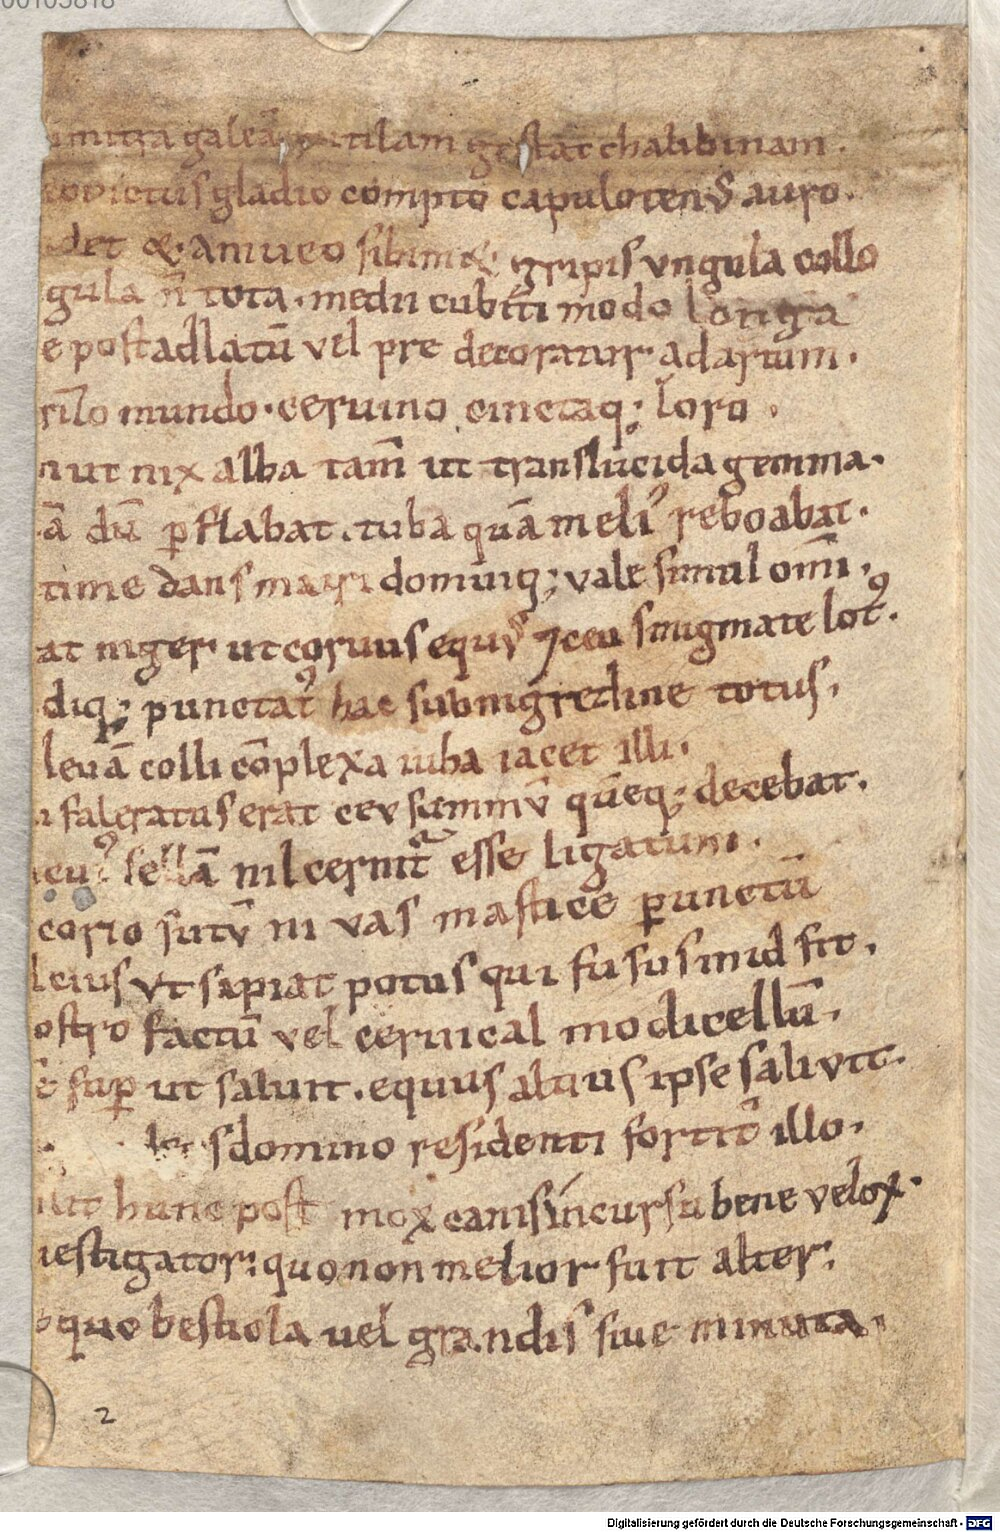 00105818
mitra galeā rutilam gestat chalibinam.
gladio compto capulotenꝰ auro.
det &. amueo sibimet gripis ungula collo
gula n̄ tota. medii cubiti modo longa
e post ad latū vel pre decoratur ad artum.
rilo mundo. ceruino cinctaq; loro.
n ut nix alba tam̄ ut translucida gemma.
ā dū ꝑflabat. tuba quā meliꝰ reboabat.
time dans matri domuiq; vale simul omī.
at niger ut coruus equꝰ ⁊ ceu smigmate lotꝰ.
diq; punctatꝰ hac subnigredine totus.
leuā colli cōplexa iuba iacet illi.
i faleratus erat ceu summū quēq; decebat.
cuiꝰ sellā nil cernitᷓ esse ligatum.
corio sutū ni vas mastice ꝑunctū
leius ut sapiat potus qui fusus inid sit.
ostro factū vel ceruical modicellū.
ē suꝑ ut saluit. equus altius ipse saliuit.
s domino residenti fortit̄ illo.
uit hunc post mox canis incursu bene velox.
uestigator: quo non melior fuit alter.
quo bestiola uel grandis siue minuta.
2
Digitalisierung gefördert durch die Deutsche Forschungsgemeinschaft - DFG